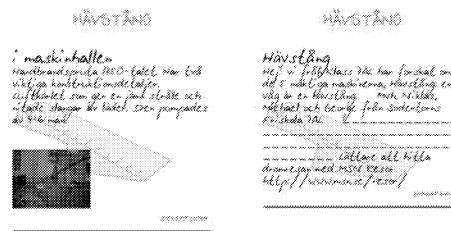 HÄVSTÅNG
i maskinhallen
Handbrandspruta 1850-talet. Har två
viktiga konstruktionsdetaljer.
Luftkärlet som ger en jämn stråle och
nitade slangar av läder. Den pumpades
av 4-6 man.
HÄVSTÅNG
Hävstång
Hej! vi från klass 7AL har forskat om
de 5 mäktiga maskinerna, Hävstång en
våg är en hävstång. Mvh, Niklas,
Michael och George från Södertörns
Friskola 7AL
Lättare att hitta
drömresan med MSN Resor
http://www.msn.se/resor/